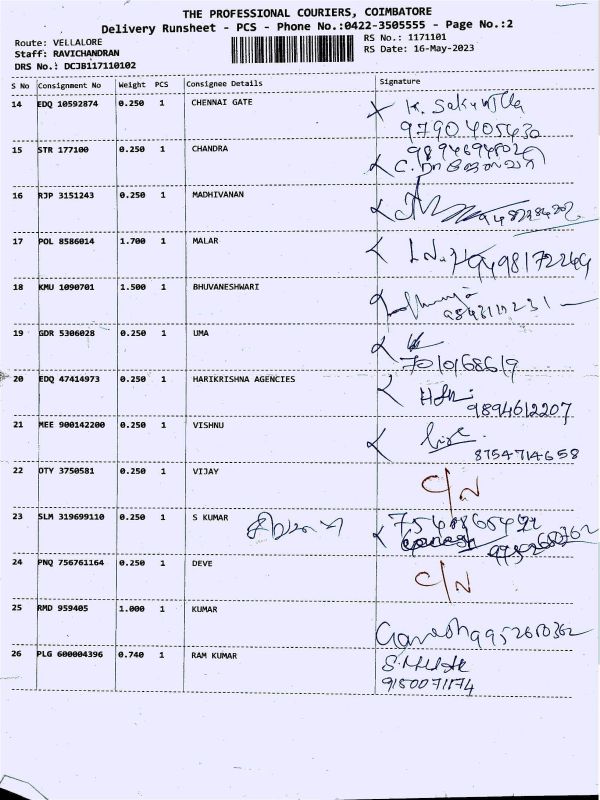 THE PROFESSIONAL COURIERS, COIMBATORE
Delivery Runsheet - PCS - Phone No.:0422-3505555 - Page No.:2
Route: VELLALORE
RS No.: 1171101
Staff: RAVICHANDRAN
RS Date: 16-May-2023
DRS No.: DCJB117110102
S No Consignment No Weight PCS Consignee Details Signature
14 EDQ 10592874 0.250 1 CHENNAI GATE
9790405430
15 STR 177100 0.250 1 CHANDRA
16 RJP 3151243 0.250 1 MADHIVANAN
17 POL 8586014 1.700 1 MALAR
9498172249
18 KMU 1090701 1.500 1 BHUVANESHWARI
19 GDR 5306028 0.250 1 UMA
7010168619
20 EDQ 47414973 0.250 1 HARIKRISHNA AGENCIES
9894612207
21 MEE 900142200 0.250 1 VISHNU
8754714658
22 OTY 3750581 0.250 1 VIJAY C/N
23 SLM 319699110 0.250 1 S KUMAR
24 PNQ 756761164 0.250 1 DEVE C/N
25 RMD 959405 1.000 1 KUMAR
Ganesh 9952650362
26 PLG 600004396 0.740 1 RAM KUMAR
9150071174